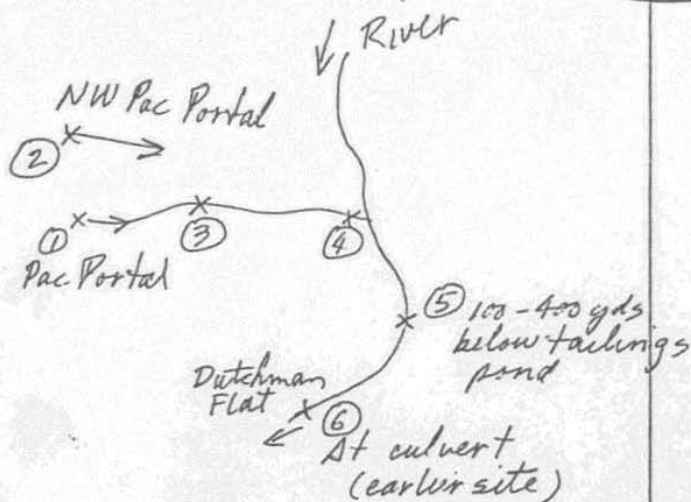 River
NW Pac Portal
②
① ③ ④
Pac Portal
⑤ 100-400 yds
below tailings
pond
Dutchman
Flat
⑥
At culvert
(earlier site)